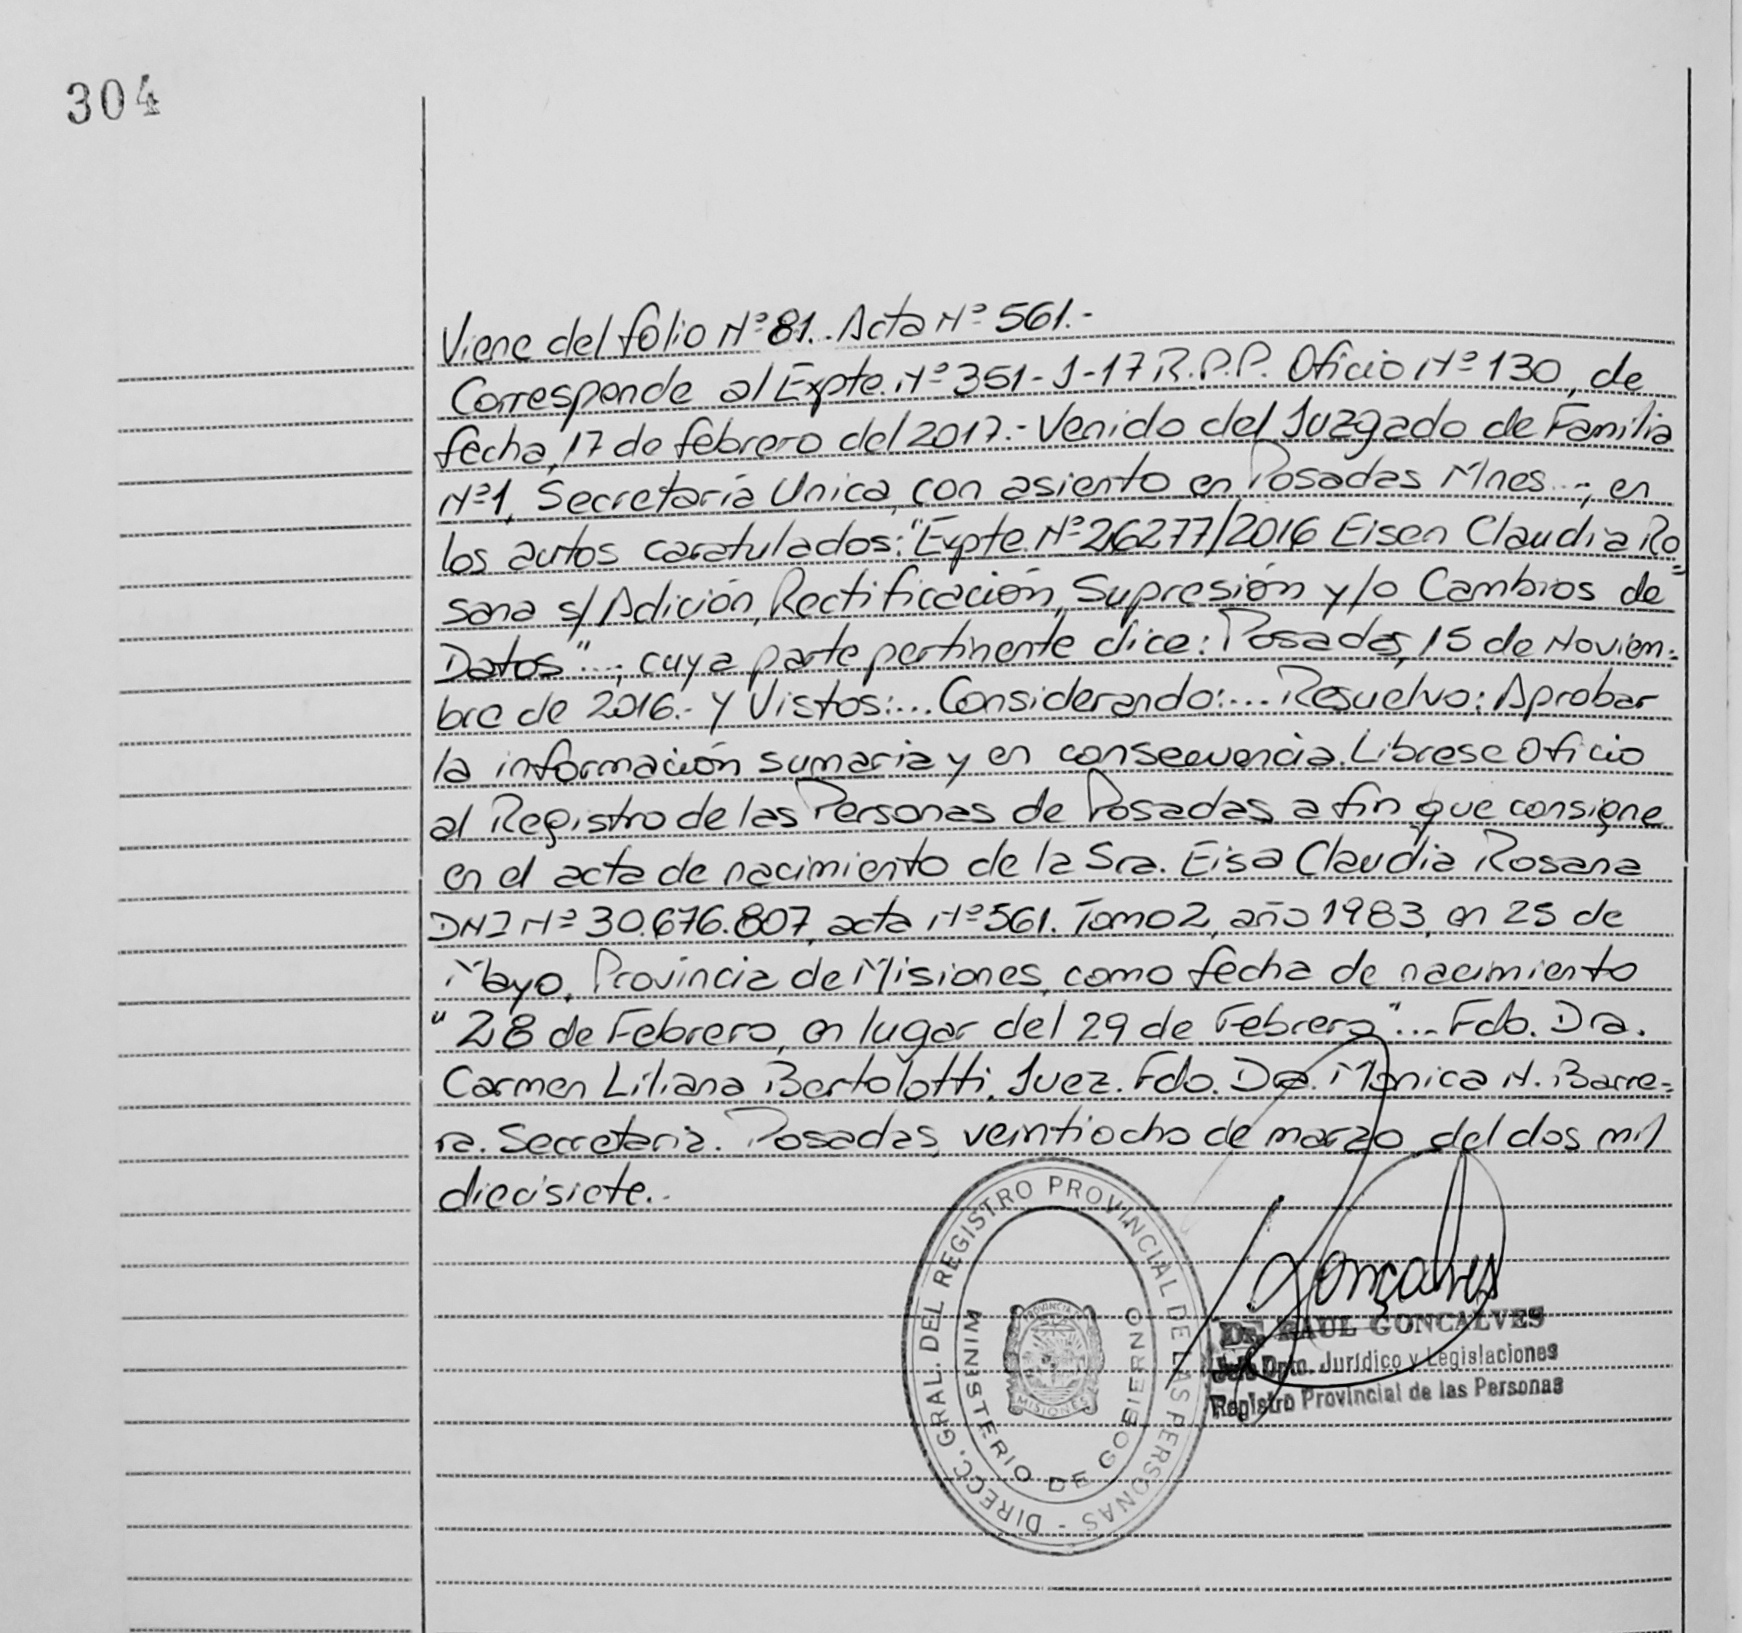 304
Viene del folio Nº 81.. Acta Nº 561.-
Corresponde al Expte. Nº 351-J-17 R.P.P. Oficio Nº 130, de
fecha, 17 de febrero del 2017.- Venido del Juzgado de Familia
Nº1, Secretaría Unica, con asiento en Posadas Mnes...; en
los autos caratulados: "Expte. Nº 26277/2016 Eisen Claudia Ro=
sana s/ Adición, Rectificación, Supresión y/o Cambios de
Datos"...; cuya parte pertinente dice: Posadas, 15 de Noviem=
bre de 2016.- Y Vistos:... Considerando:... Resuelvo: Aprobar
la información sumaria y en consecuencia. Librese Oficio
al Registro de las Personas de Posadas a fin que consigne
en el acta de nacimiento de la Sra. Eisa Claudia Rosana
DNI Nº 30.676.807, acta Nº 561. Tomo 2, año 1983, en 25 de
Mayo, Provincia de Misiones, como fecha de nacimiento
"28 de Febrero, en lugar del 29 de Febrero"... Fdo. Dra.
Carmen Liliana Bertolotti. Juez. Fdo. Dra. Monica N. Barre=
ra. Secretaria. Posadas, veintiocho de marzo del dos mil
diecisiete..
DIRECC. GRAL. DEL REGISTRO PROVINCIAL DE LAS PERSONAS -
MINISTERIO DE GOBIERNO
PROVINCIA DE
MISIONES
Goncalves
Dr. RAUL GONCALVES
Jefe Dpto. Jurídico y Legislaciones
Registro Provincial de las Personas